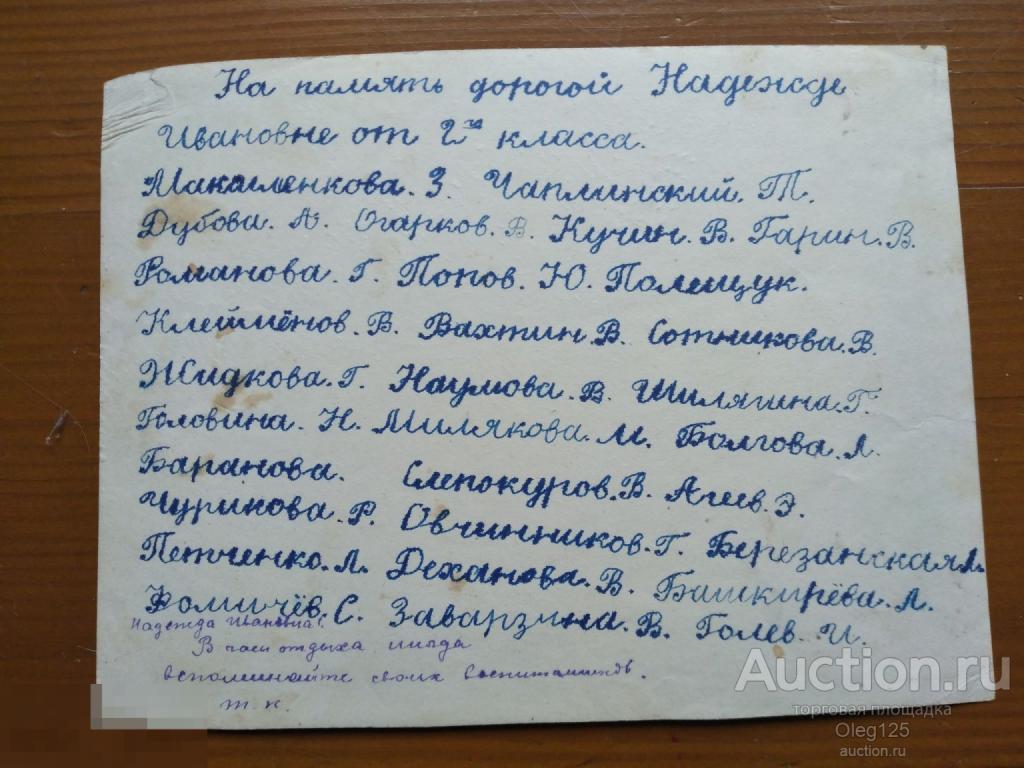 На память дорогой Надежде
Ивановне от 2го класса.
Макаленкова. З. Чаплинский. Т.
Дубова. А. Огарков. В. Кучин. В. Гарин. В.
Романова. Г. Попов. Ю. Полещук.
Клеймёнов. В. Вахтин. В. Сотникова. В.
Жидкова. Г. Наумова. В. Шилягина. Г.
Головина. Н. Милякова. М. Болгова. Л.
Баранова. Слепокуров. В. Агеев. Э.
Чурикова. Р. Овчинников. Г. Березанская Л.
Петченко. Л. Деханова. В. Башкирёва. Л.
Фомичёв. С. Заварзина. В. Голев. И.
Надежда Ивановна!
В часы отдыха иногда
вспоминайте своих воспитанников.
т. к.
Auction.ru
торговая площадка
Oleg125
auction.ru